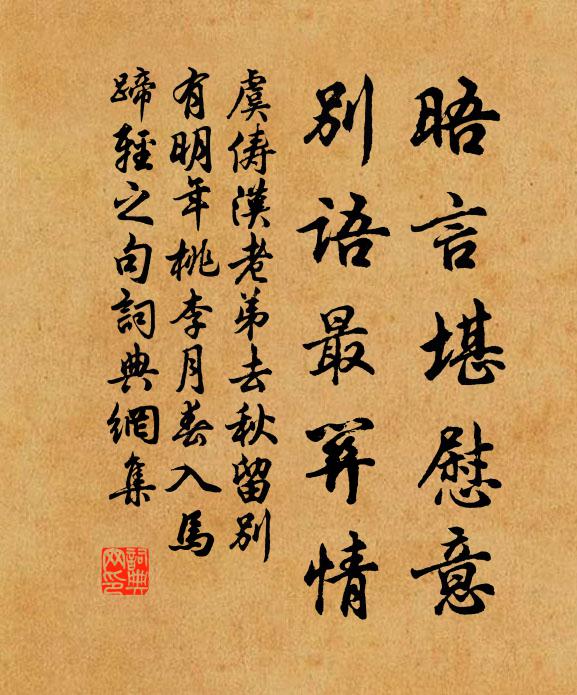 晤言堪慰意
別語最關情
虞儔漢老弟去秋留別
有明年桃李月春入馬
蹄輕之句詞典網集
詞典
网印